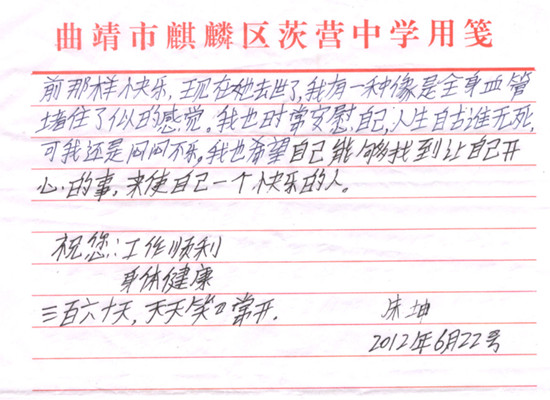 曲靖市麒麟区茨营中学用笺
前那样快乐,现在她去世了,我有一种像是全身血管
堵住了似的感觉。我也时常安慰自己,人生自古谁无死,
可我还是闷闷不乐。我也希望自己能够找到让自己开
心的事,来使自己一个快乐的人。
祝您:工作顺利
身体健康
三百六十天,天天笑口常开.
坤
2012年6月22号